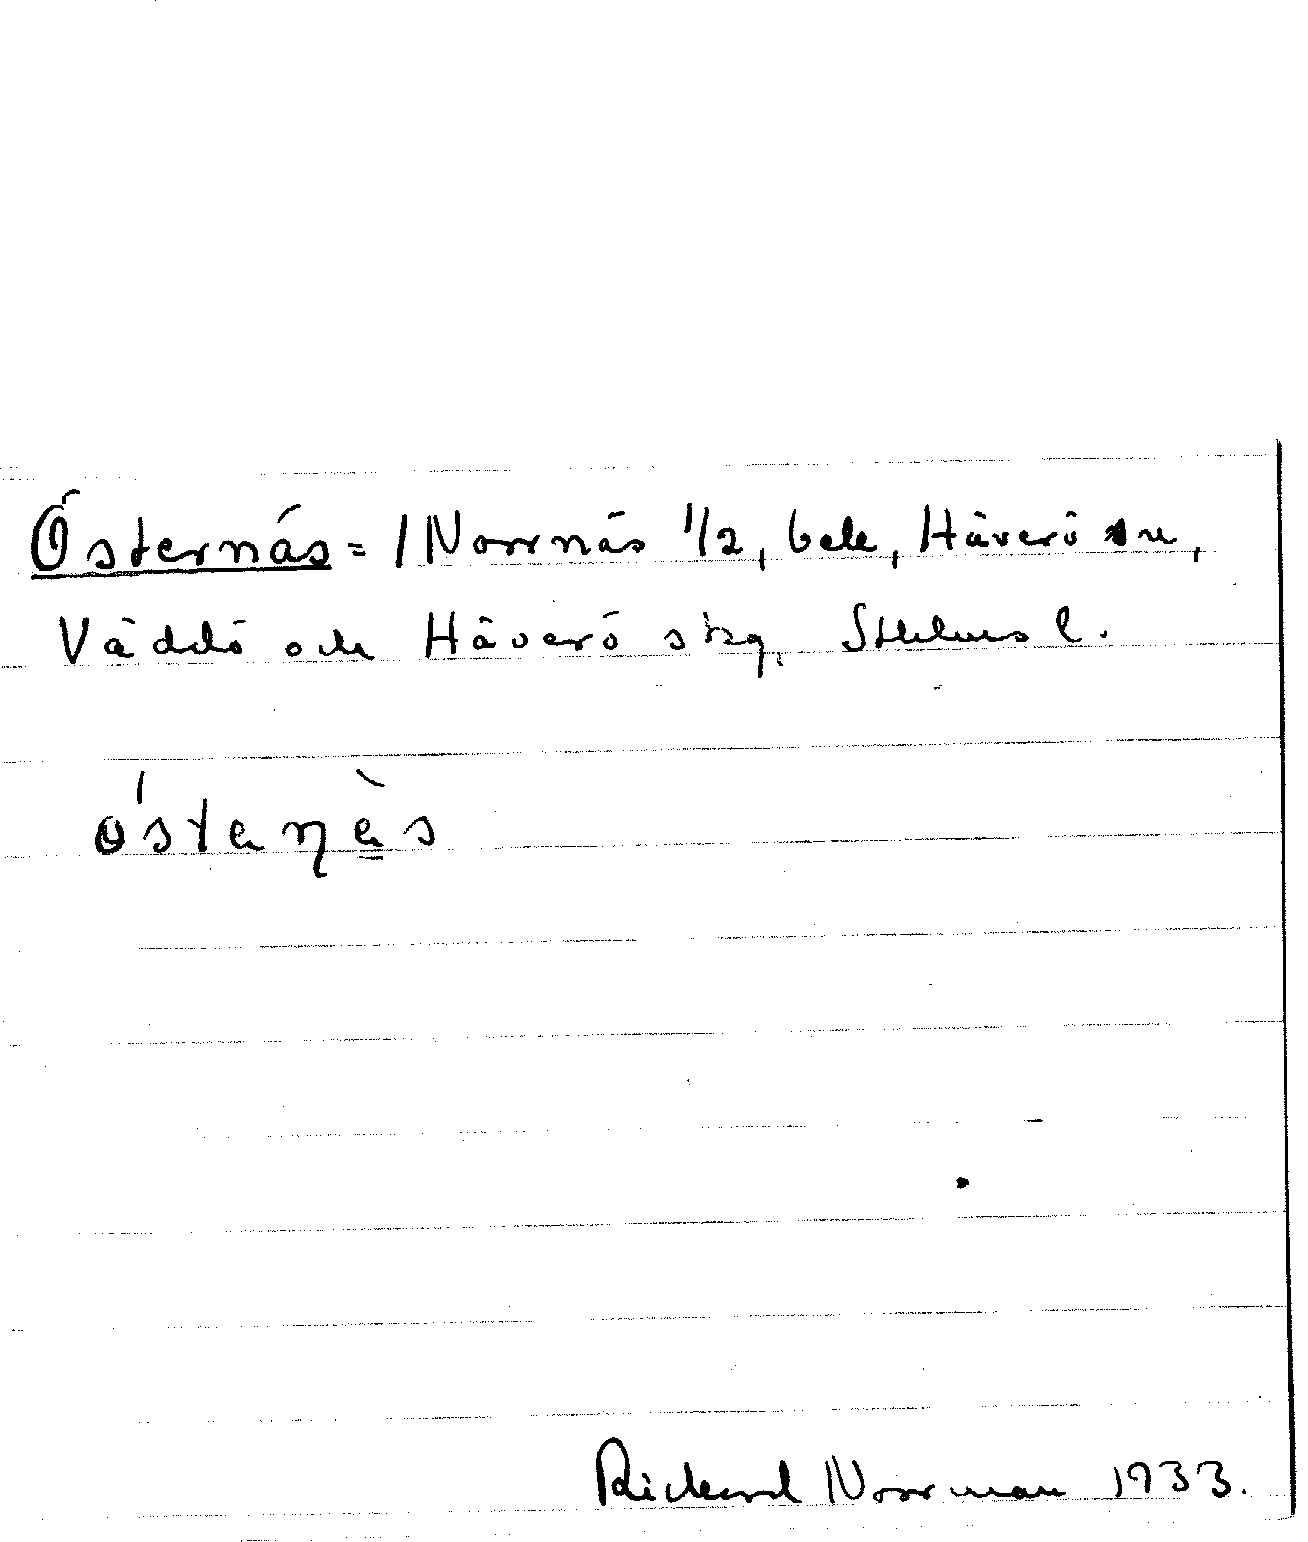 Östernäs = / Norrnäs 1/2, bele, Häverö sn,
Väddö och Häverö skg, Sthlms l.
östaṇäs
Rickard Norrman 1933.